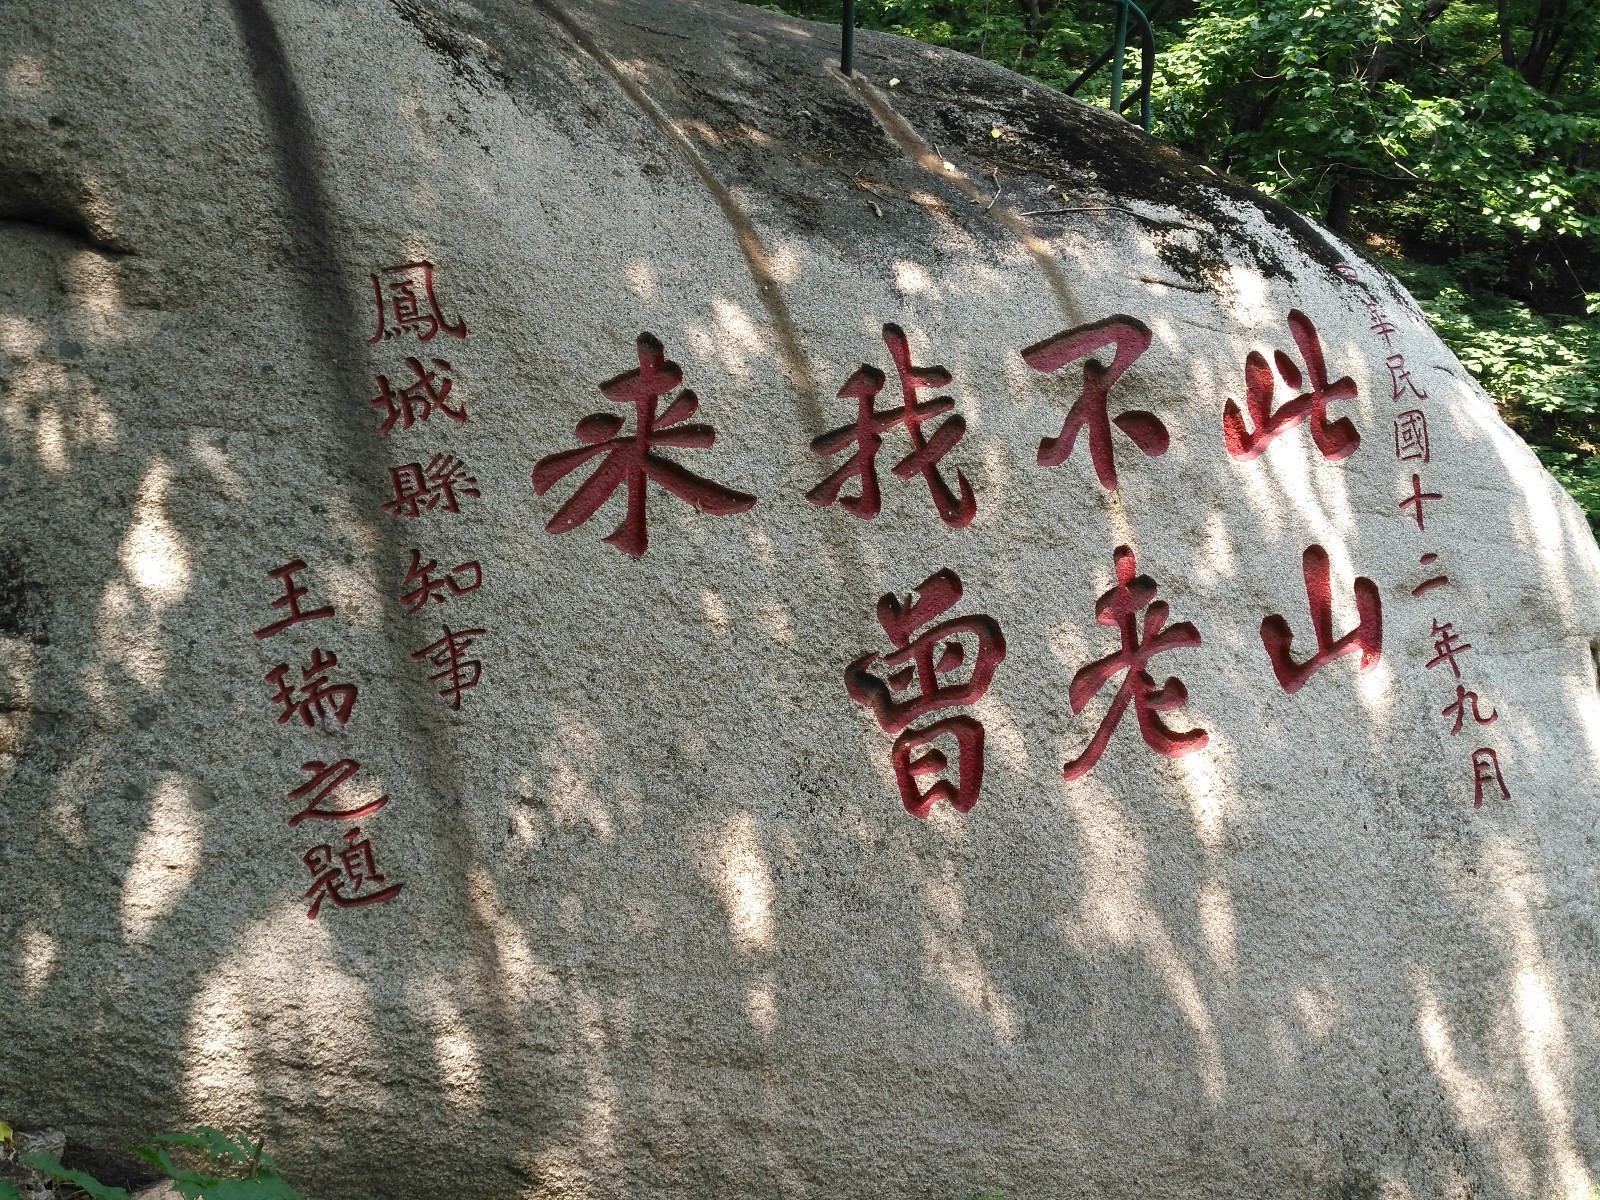 中華民國十二年九月
此山
不老
我曾
來
鳳城縣知事
王瑞之題